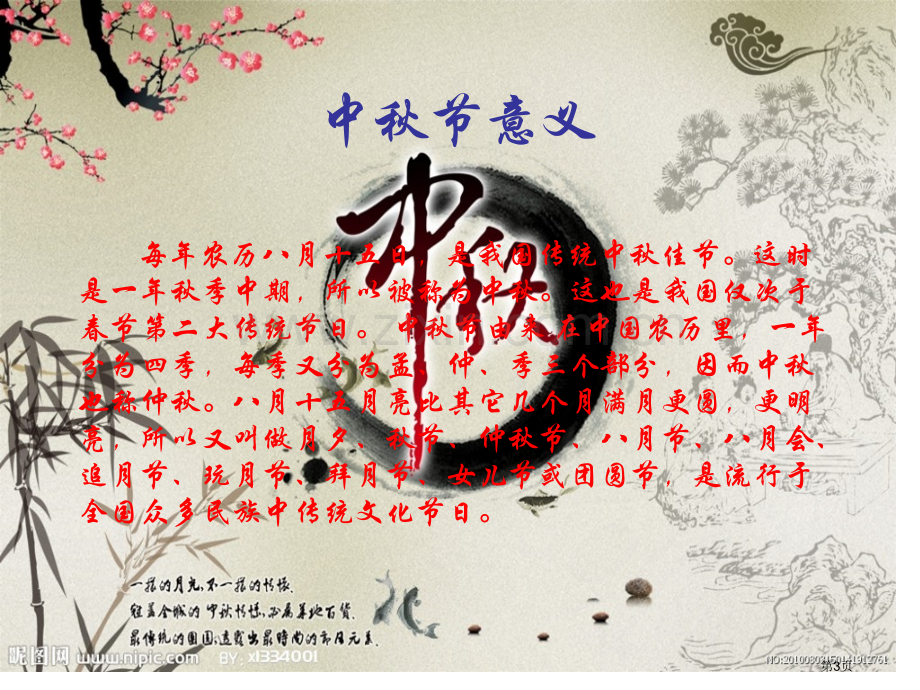 中秋节意义
中秋
每年农历八月十五日，是我国传统中秋佳节。这时
是一年秋季中期，所以被称为中秋。这也是我国仅次于
春节第二大传统节日。中秋节由来:在中国农历里，一年
分为四季，每季又分为孟、仲、季三个部分，因而中秋
也称仲秋。八月十五月亮比其它几个月满月更圆，更明
亮，所以又叫做月夕、秋节、仲秋节、八月节、八月会、
追月节、玩月节、拜月节、女儿节或团圆节，是流行于
全国众多民族中传统文化节日。
一样的月光,不一样的情怀.
昵图网 www.nipic.com BY: xl334001
NO:20100303150141912761
第3页